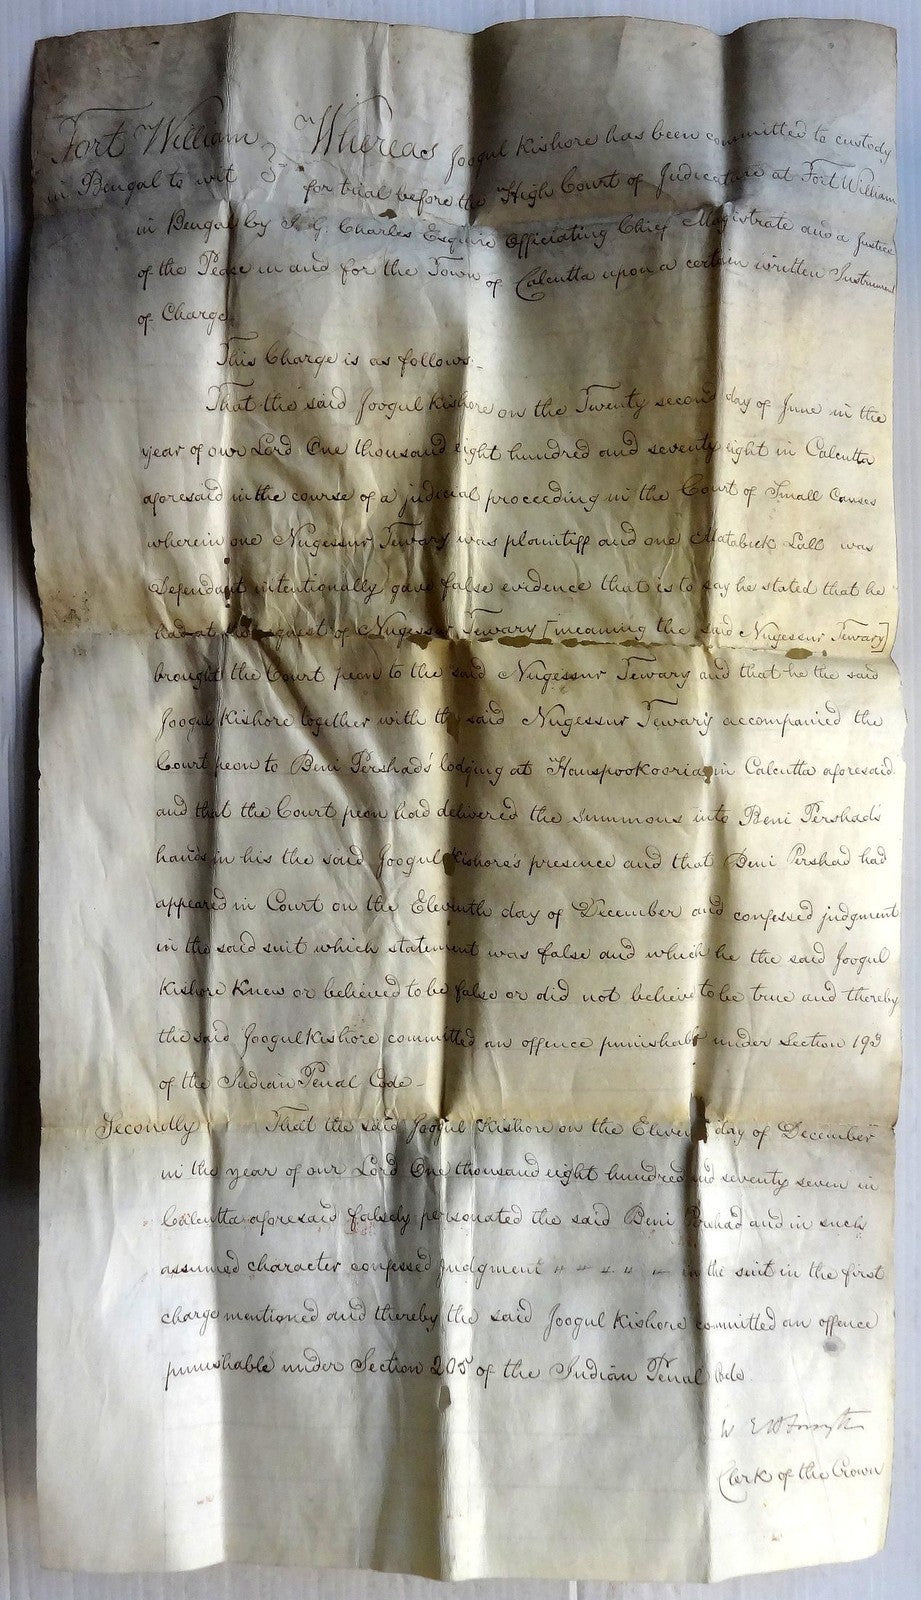 Fort William } Whereas Joogul Kishore has been committed to custody
in Bengal to wit } for trial before the High Court of Judicature at Fort William
in Bengal by F. G. Charles Esquire Officiating Chief Magistrate and a Justice
of the Peace in and for the Town of Calcutta upon a certain written Instrument
of Charge
This Charge is as follows._
That the said Joogul Kishore on the Twenty second day of June in the
year of our Lord One thousand eight hundred and seventy eight in Calcutta
aforesaid in the course of a judicial proceeding in the Court of Small Causes
wherein one Nugessur Tewary was plaintiff and one Matabuck Lall was
Defendant intentionally gave false evidence that is to say he stated that he
had at the request of Nugessur Tewary [meaning the said Nugessur Tewary]
brought the Court peon to the said Nugessur Tewary and that he the said
Joogul Kishore together with the said Nugessur Tewary accompanied the
Court peon to Beni Pershad's lodging at Hanspookooria in Calcutta aforesaid
and that the Court peon had delivered the summons into Beni Pershad's
hands in his the said Joogul Kishore's presence and that Beni Pershad had
appeared in Court on the Eleventh day of December and confessed judgment
in the said suit which statement was false and which he the said Joogul
Kishore knew or believed to be false or did not believe to be true and thereby
the said Joogul Kishore committed an offence punishable under Section 193
of the Indian Penal Code_
Secondly That the said Joogul Kishore on the Eleventh day of December
in the year of our Lord One thousand eight hundred and seventy seven in
Calcutta aforesaid falsely personated the said Beni Pershad and in such
assumed character confessed judgment " " " " " in the suit in the first
charge mentioned and thereby the said Joogul Kishore committed an offence
punishable under Section 205 of the Indian Penal Code.
Clerk of the Crown